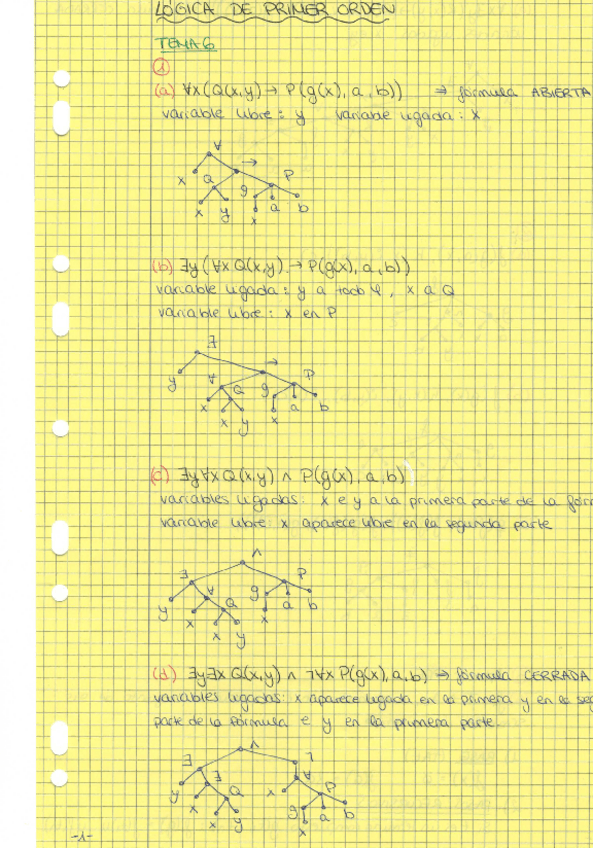 LÓGICA DE PRIMER ORDEN
TEMA 6
1
(a) ∀x(Q(x,y) → P(g(x), a, b)) ⇒ fórmula ABIERTA
variable libre: y variable ligada: x
∀
→
x Q g P
x y x a b
(b) ∃y(∀x Q(x,y) → P(g(x), a, b))
variable ligada: y a todo φ, x a Q
variable libre: x en P
∃
→
y ∀ Q g P
x x y x a b
(c) ∃y∀x Q(x,y) ∧ P(g(x), a, b)
variables ligadas: x e y a la primera parte de la fórm
variable libre: x aparece libre en la segunda parte
∧
∃ P
y ∀ Q g a b
x x y x
(d) ∃y∃x Q(x,y) ∧ ¬∀x P(g(x), a, b) ⇒ fórmula CERRADA
variables ligadas: x aparece ligada en la primera y en la seg
parte de la fórmula e y en la primera parte.
∧
∃ ¬
y ∃ Q x ∀ P
x x y g a b
x
-1-